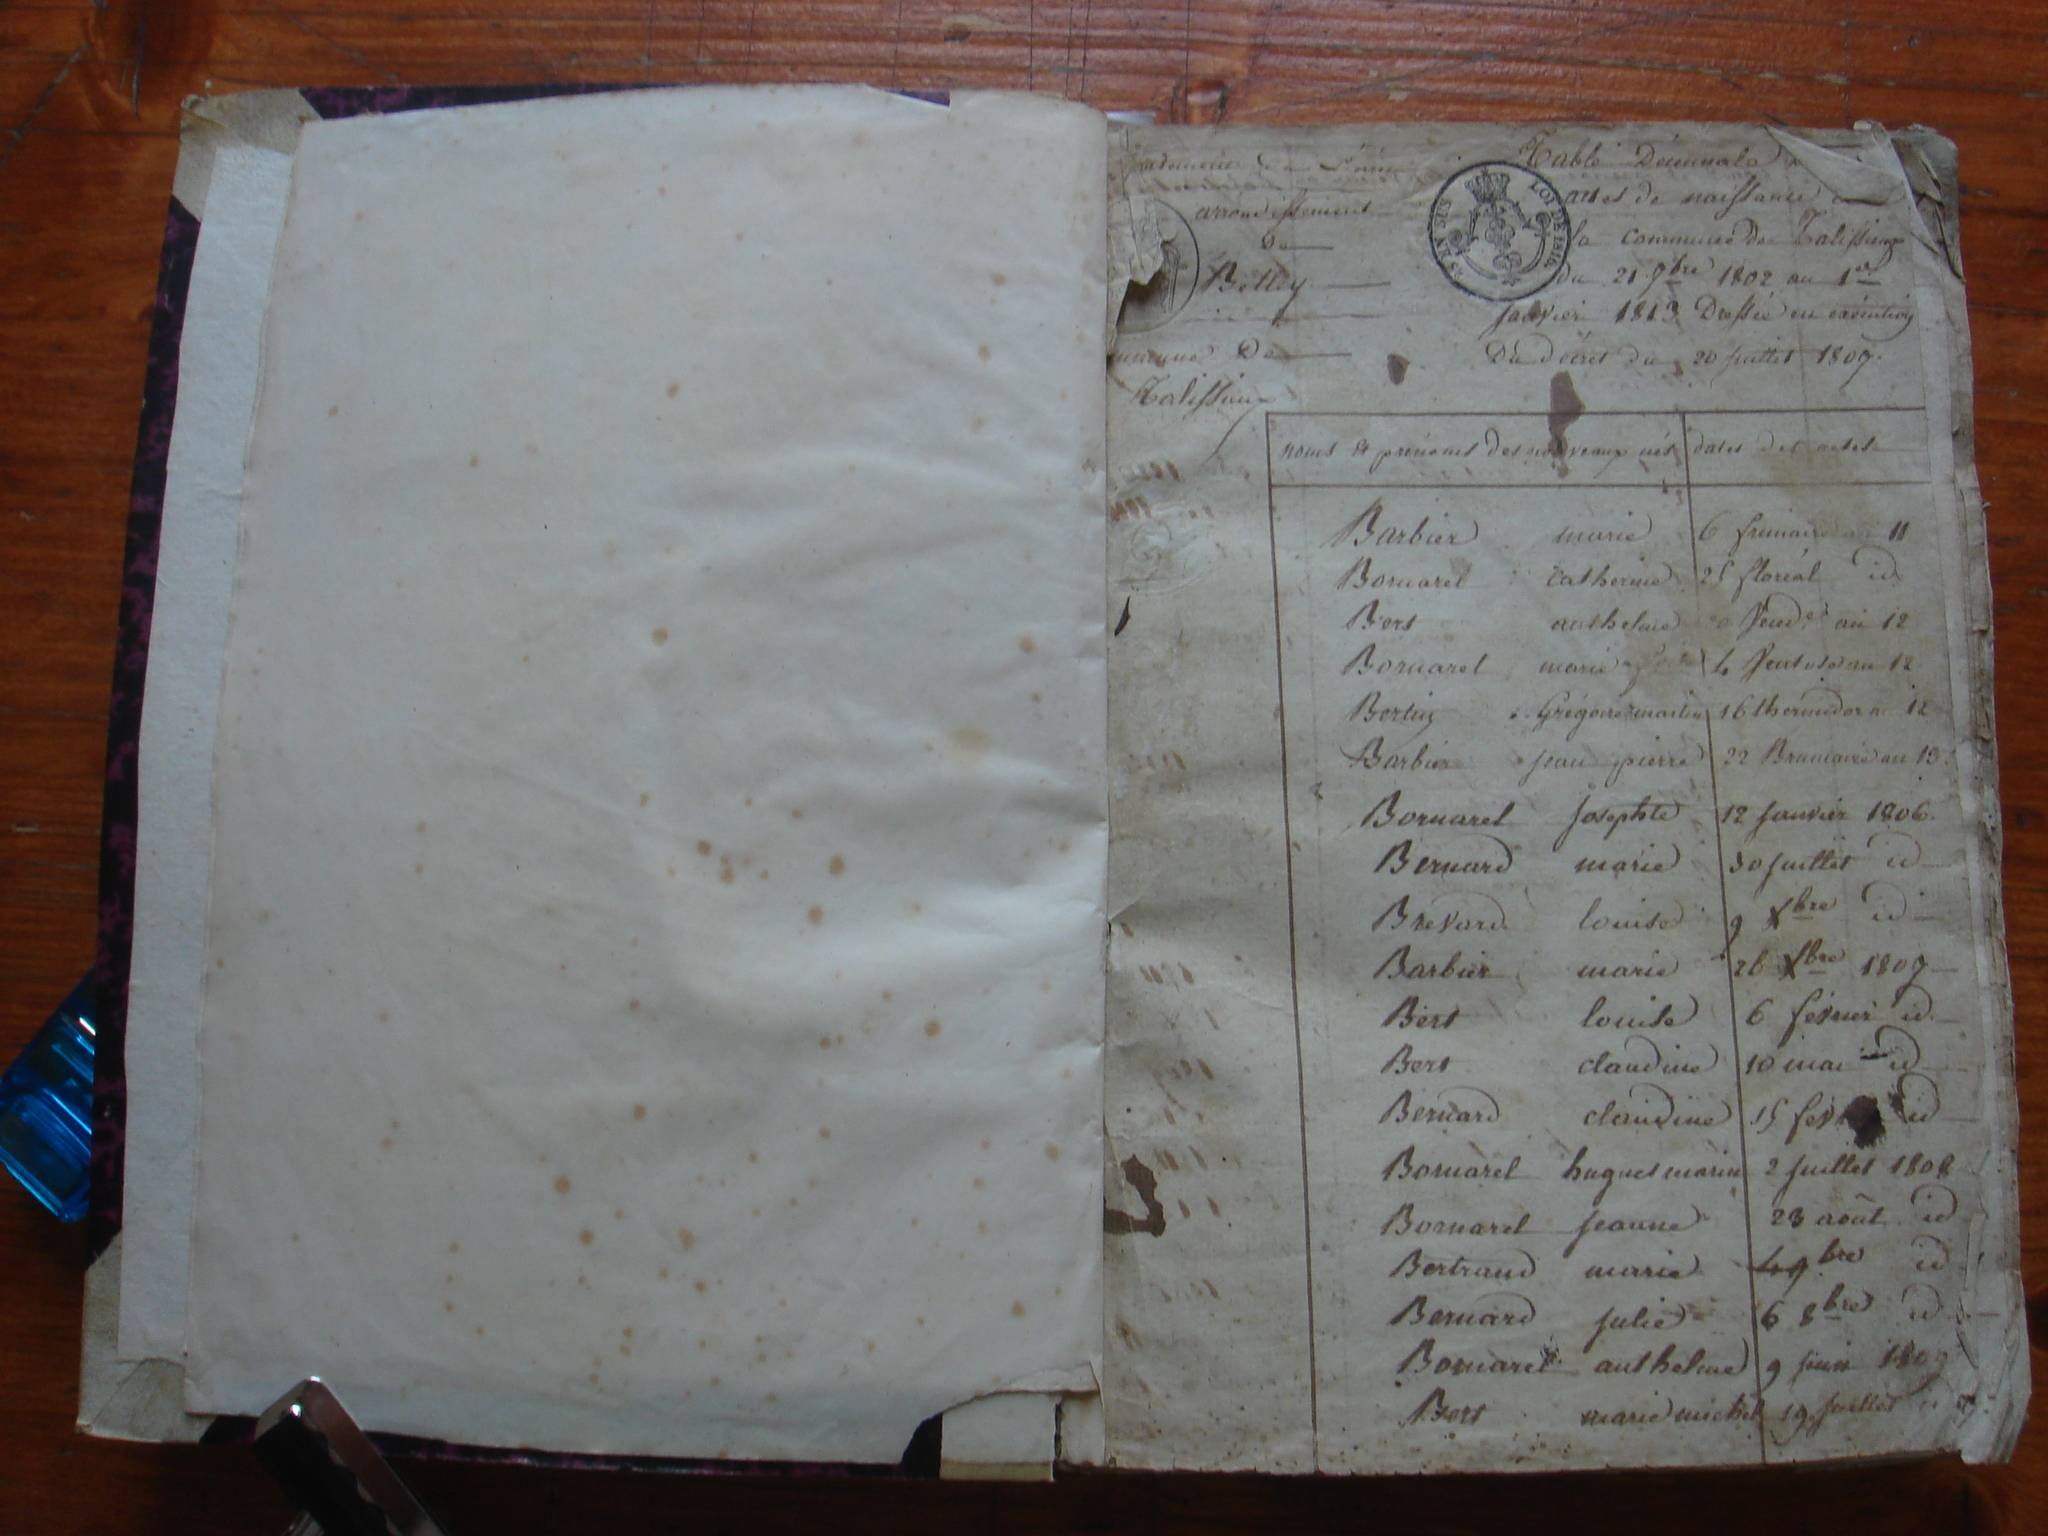 Table Décennale
arrondissement
actes de naissance
De
la commune de Talissieu
Belley
du 21 9bre 1802 au 1er
janvier 1813 Dressée en exécution
De
Du décret du 20 juillet 1807.
Talissieu
LOI DE 1816
EN SUS
noms & prénoms des nouveaux nés dates des actes
Barbier marie 6 frimaire an 11
Bornarel catherine 25 floréal id
Bert anthelme Vendre an 12
Bornarel marie 4 Ventose an 12
Bertin Grégoire martin 16 thermidor an 12
Barbier jean pierre 22 Brumaire an 13.
Bornarel josephte 12 janvier 1806.
Bernard marie 30 juillet id
Brevard louise 9 Xbre id
Barbier marie 26 Xbre 1807
Bert louise 6 février id
Bert claudine 10 mai id
Bernard claudine 15 id
Bornarel hugues marin 2 juillet 1808
Bornarel jeanne 23 août id
Bertrand marie bre id
Bernard julie 6 8bre id
Bornarel anthelme 9 juin 1809
Bert marie michel 19 juillet